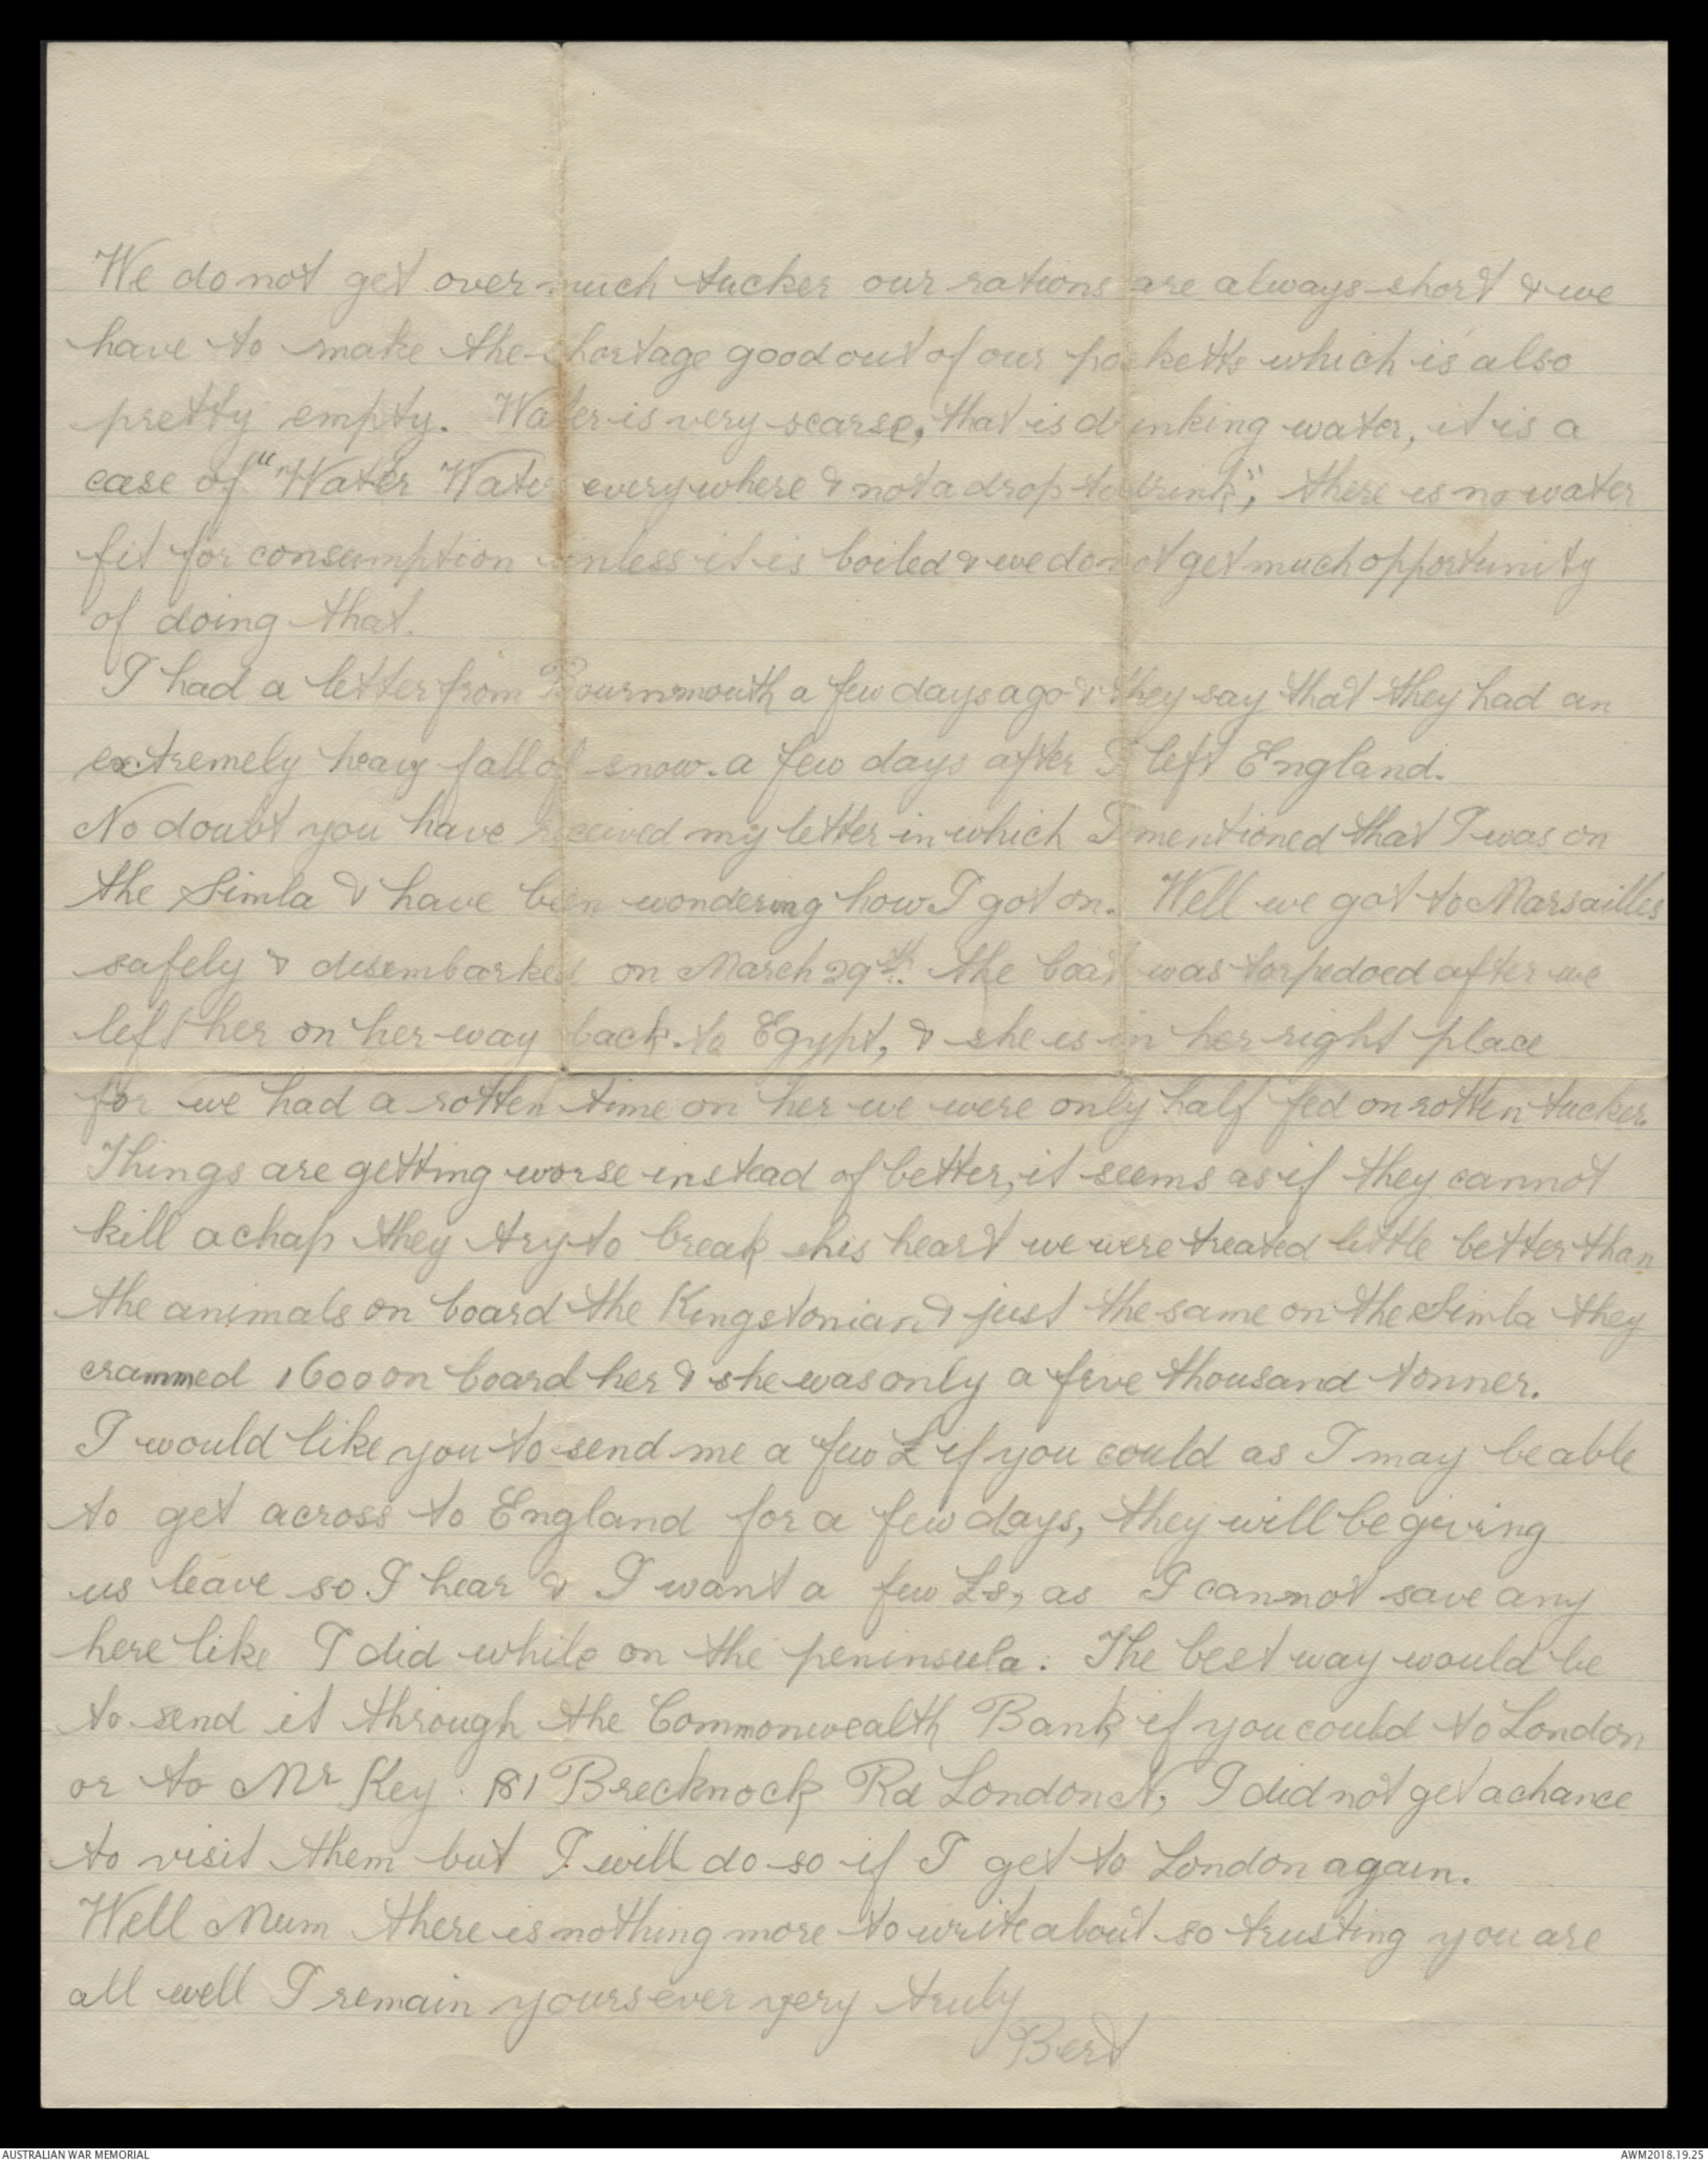 We do not get over much tucker our rations are always short & we
have to make the shortage good out of our pocketts which is also
pretty empty. Water is very scarse, that is drinking water, it is a
case of "Water Water everywhere & not a drop to drink", there is no water
fit for consumption unless it is boiled & we do not get much opportunity
of doing that.
I had a letter from Bournmouth a few days ago & they say that they had an
extremely heavy fall of snow. a few days after I left England.
No doubt you have received my letter in which I mentioned that I was on
the Simla & have been wondering how I got on. Well we got to Marsailles
safely & disembarked on March 29th. the boat was torpedoed after we
left her on her way back to Egypt, & she is in her right place
for we had a rotten time on her we were only half fed on rotten tucker.
Things are getting worse instead of better, it seems as if they cannot
kill a chap they try to break his heart we were treated little better than
the animals on board the Kingstonian & just the same on the Simla they
crammed 1600 on board her & she was only a five thousand tonner.
I would like you to send me a few £ if you could as I may be able
to get across to England for a few days, they will be giving
us leave so I hear & I want a few £s, as I cannot save any
here like I did while on the peninsula. The best way would be
to send it through the Commonwealth Bank if you could to London
or to Mr Key. 181 Brecknock Rd London N, I did not get a chance
to visit them but I will do so if I get to London again.
Well Mum there is nothing more to write about so trusting you are
all well I remain yours ever very truly
Bert
AUSTRALIAN WAR MEMORIAL AWM2018.19.25